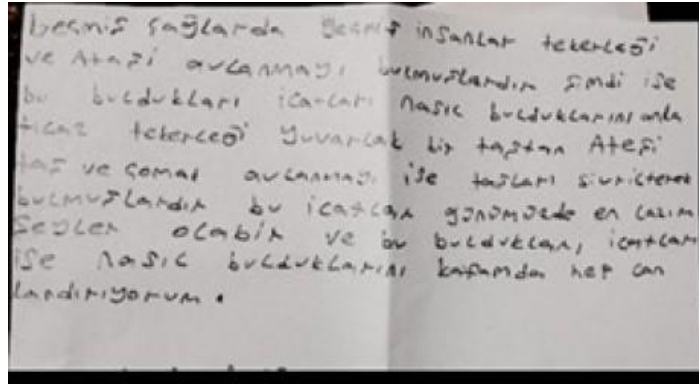 Geçmiş çağlarda geçmiş insanlar tekerleği
ve Ateşi avlanmayı bulmuşlardır şimdi ise
bu buldukları icatları nasıl bulduklarını anla
ticaz tekerleği yuvarlak bir taştan Ateşi
taş ve çomak avlanmayı ise taşları sivrilterek
bulmuşlardır bu icatlar günümüzde en lazım
şeyler olabir ve bu buldukları icatları
ise nasıl bulduklarını kafamda hep can
landırıyorum.